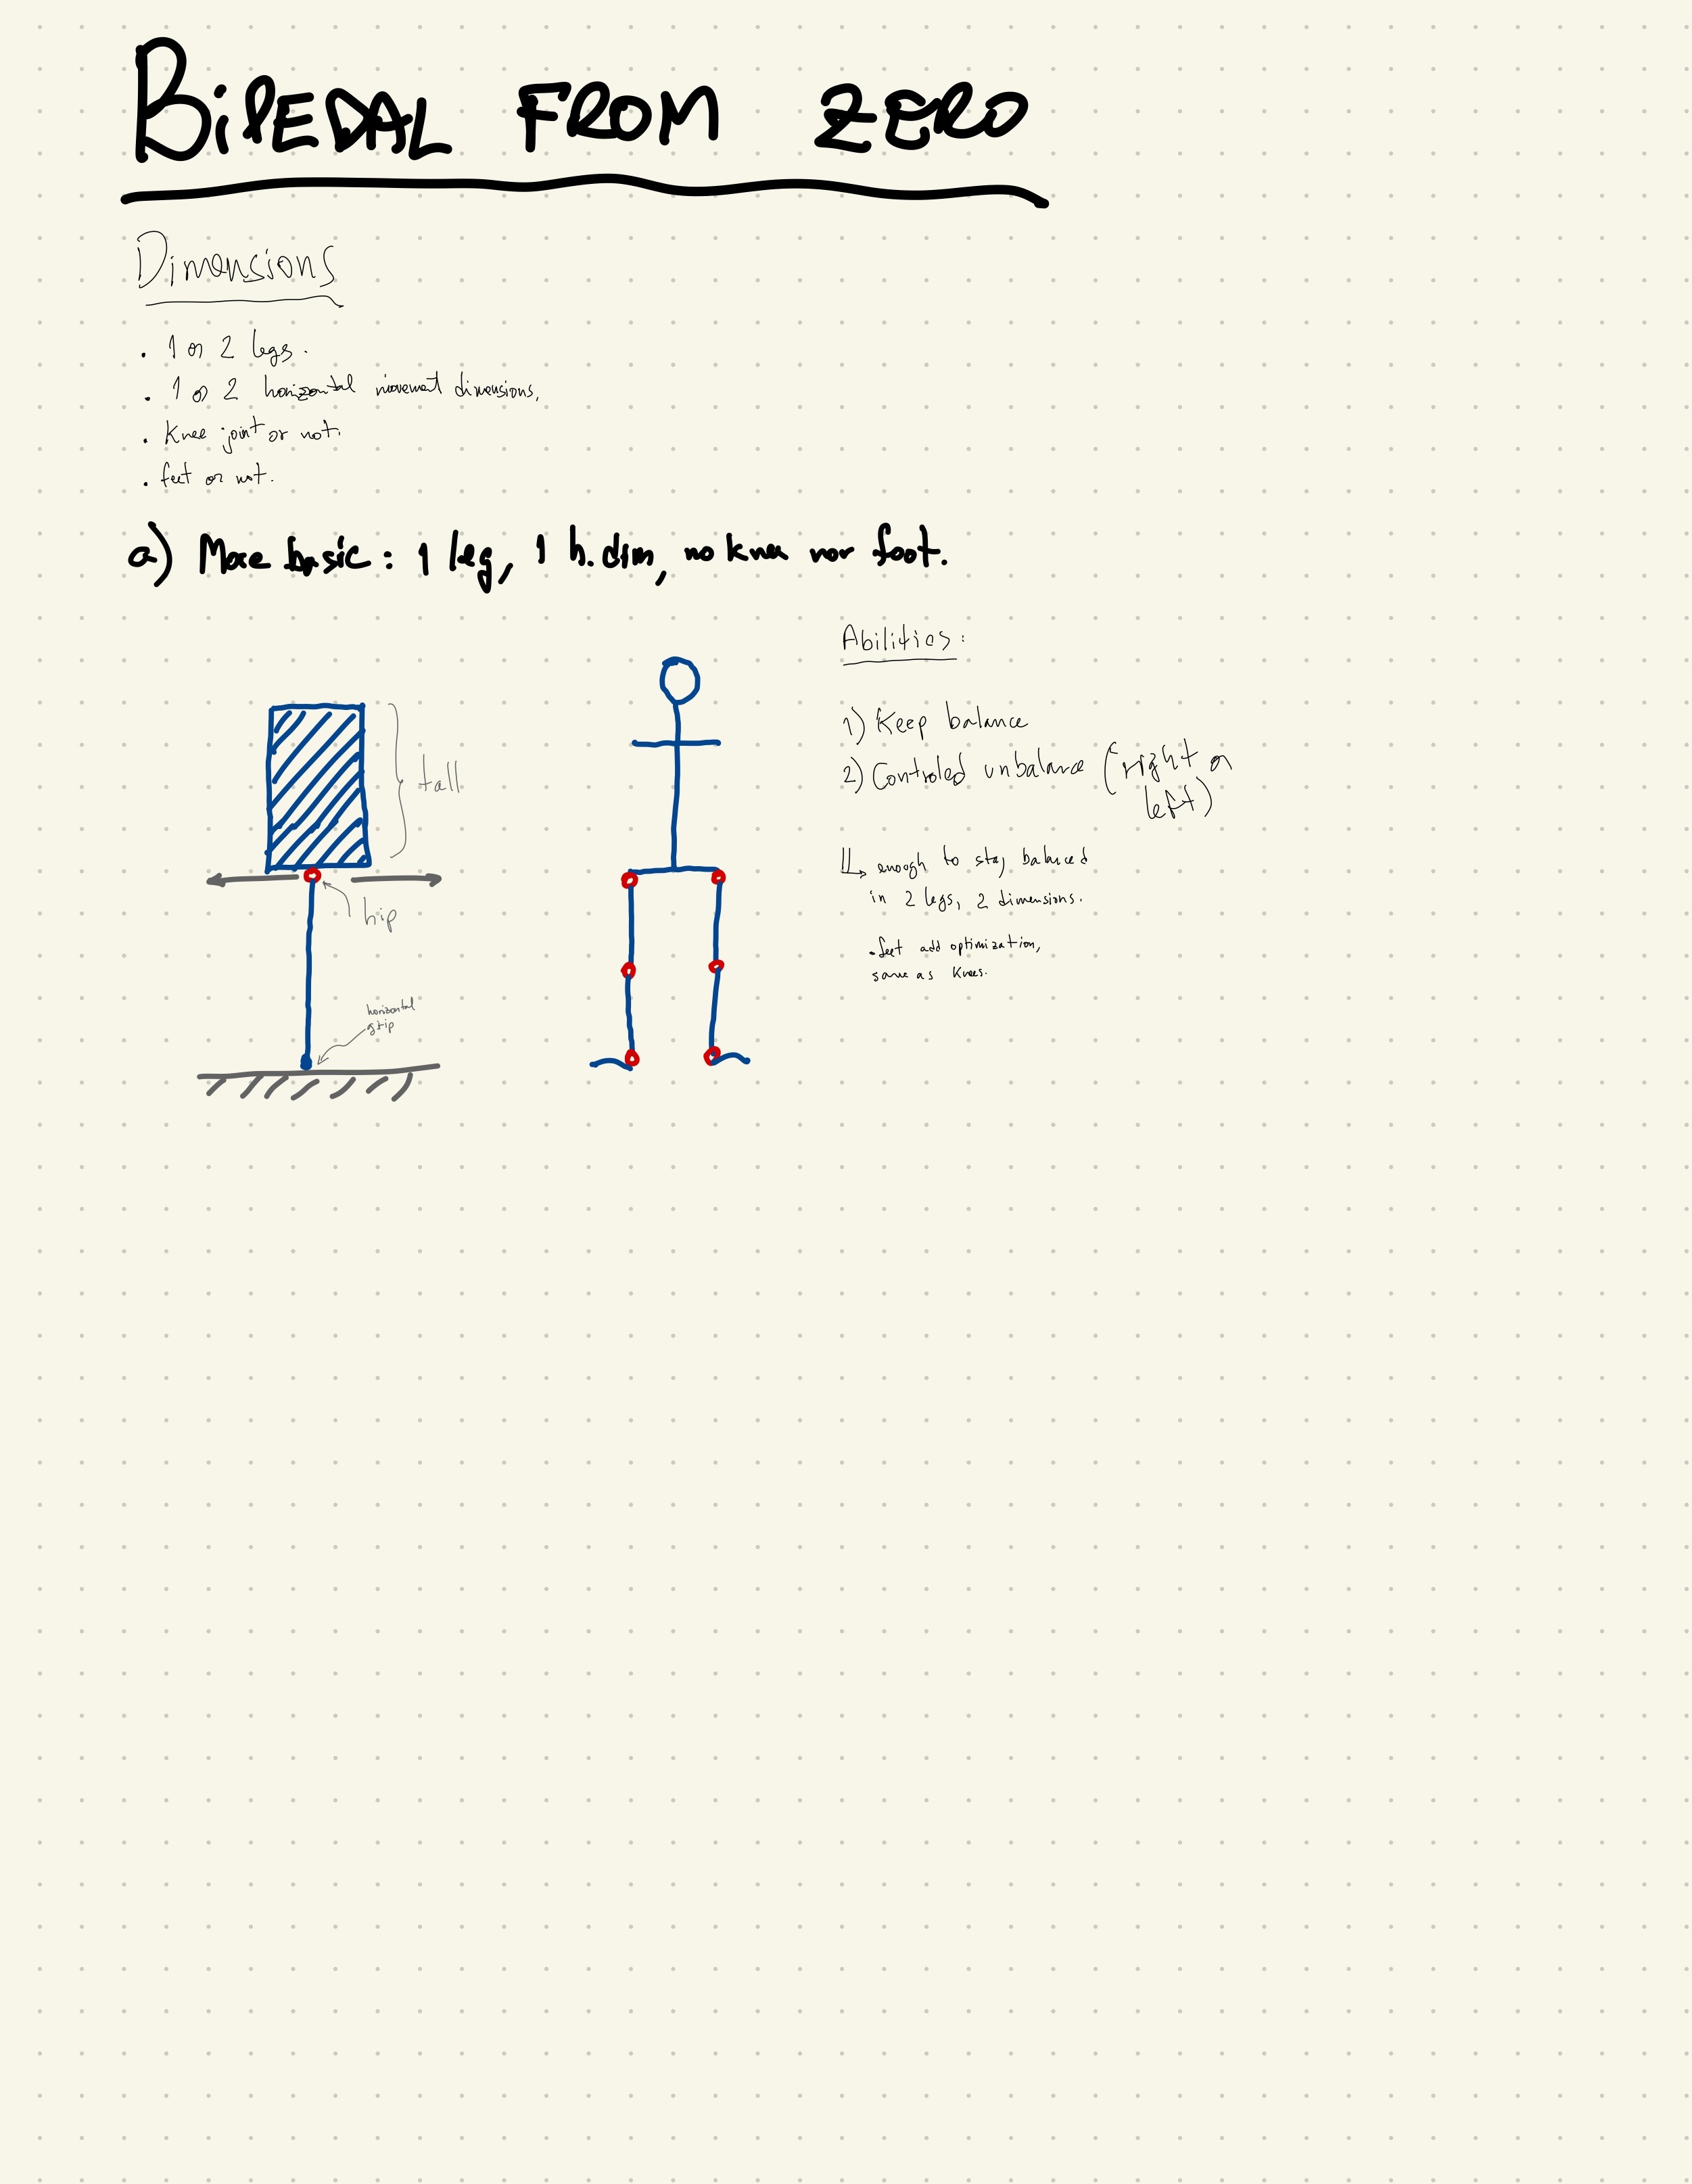 BiPEDAL FROM ZERO
Dimensions
. 1 or 2 legs.
. 1 or 2 horizontal movement dimensions,
. Knee joint or not.
. feet or not.
a) More basic: 1 leg, 1 h. dim, no knee nor foot.
Abilities:
1) Keep balance
2) Controled unbalance (right or
left)
↳ enough to stay balanced
in 2 legs, 2 dimensions.
. feet add optimization,
same as Knees.
tall
hip
horizontal
grip